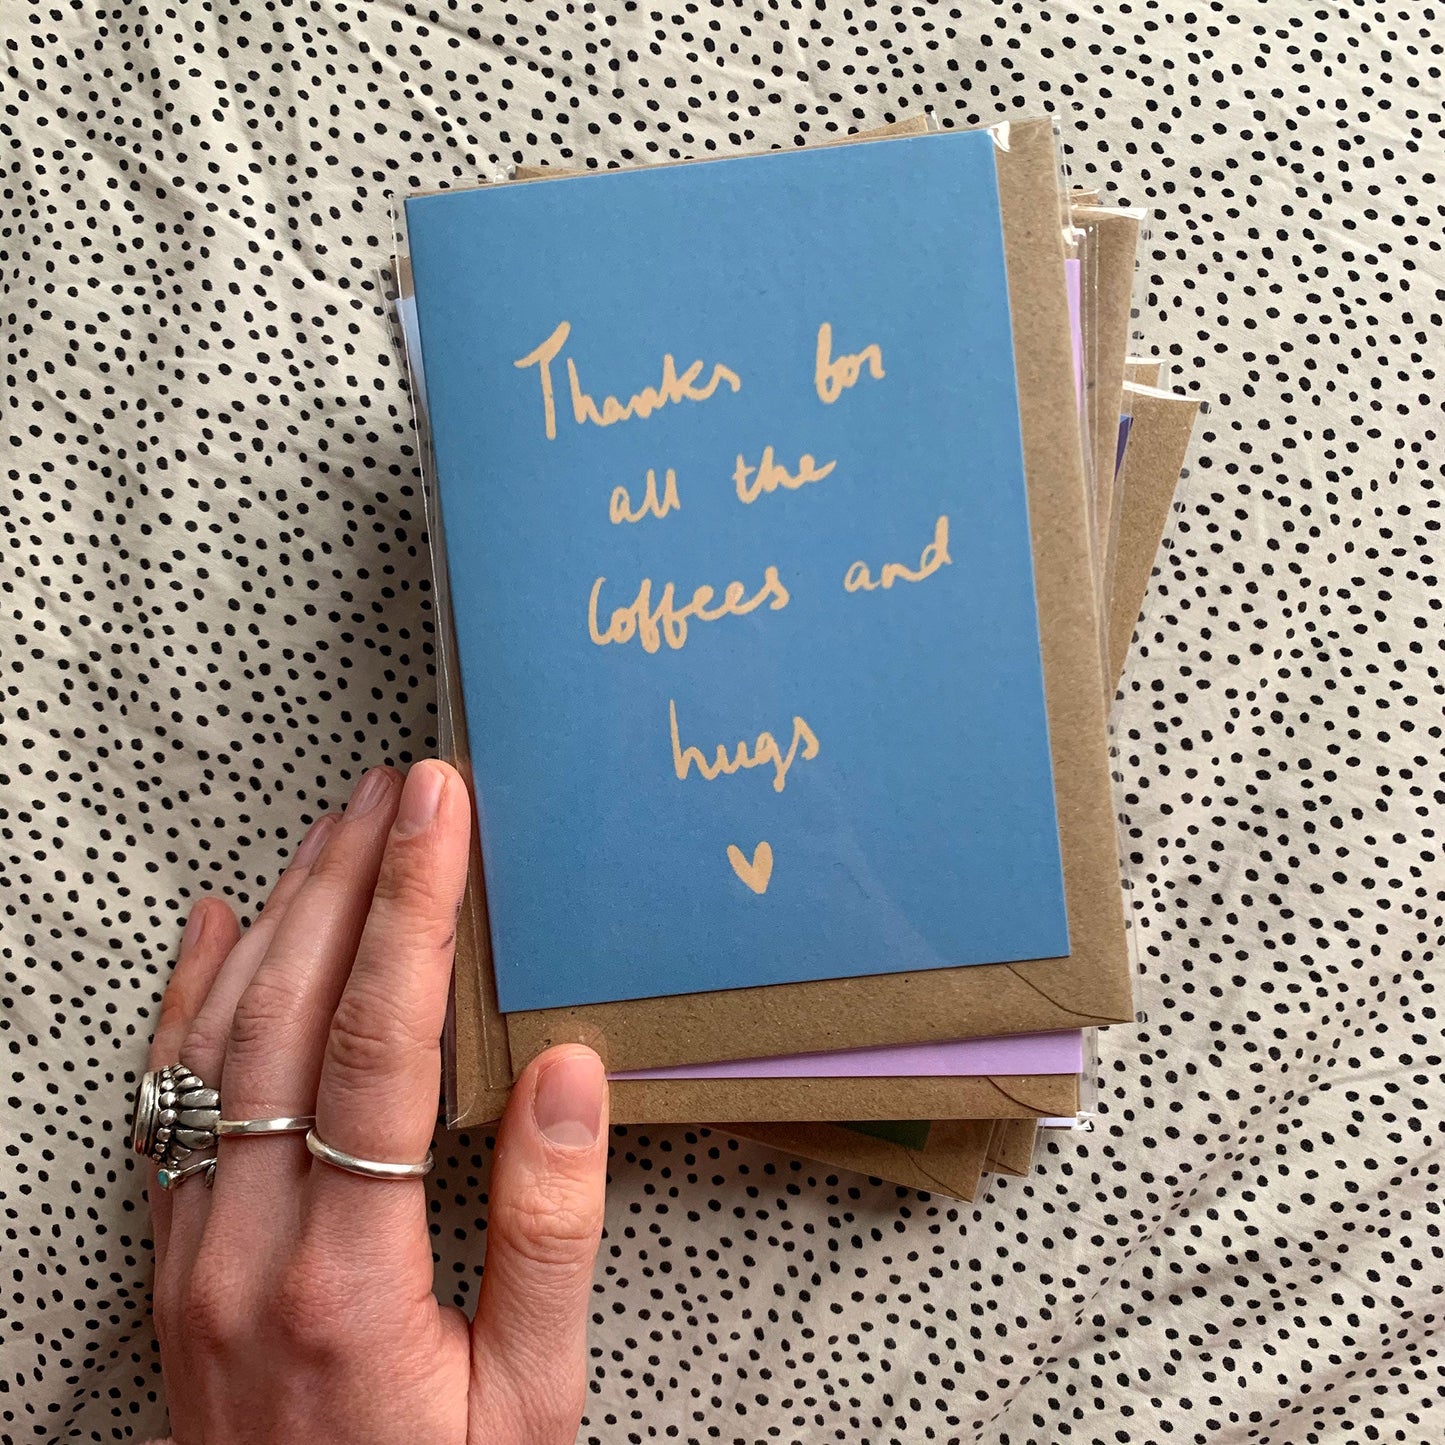 Thanks for
all the
Coffees and
hugs